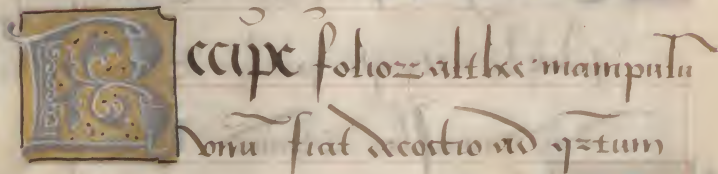 Recipe folioꝝ althee manipulū
vnū fiat decoctio ad qrtum